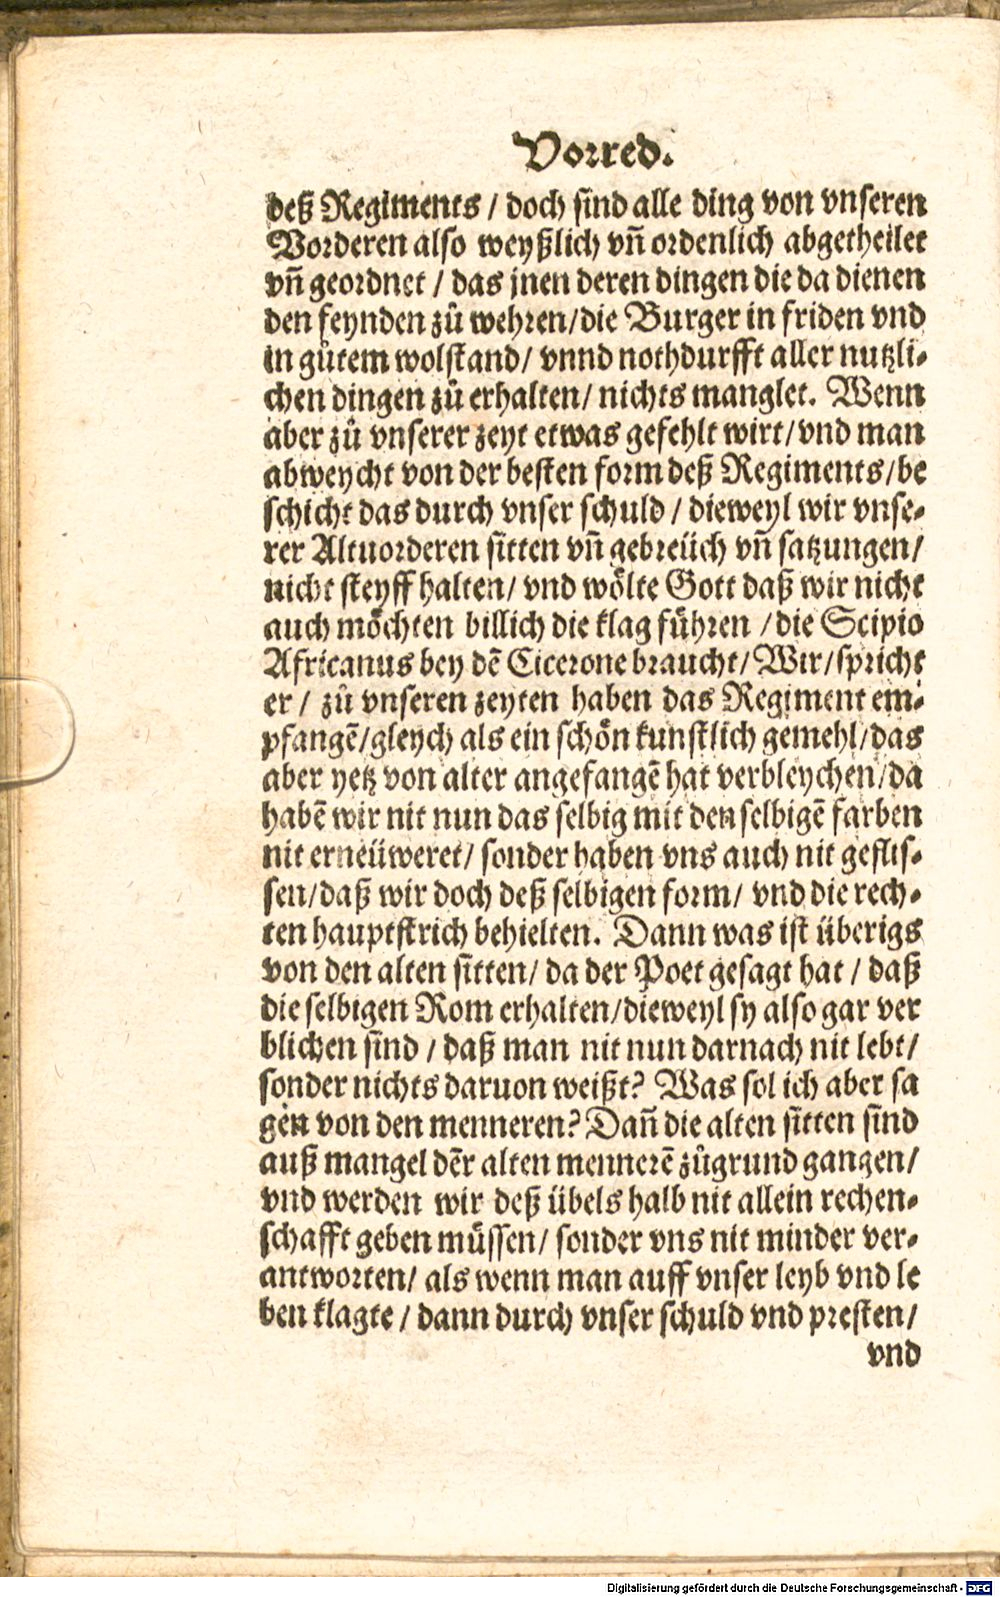 Vorred.
deß Regiments / doch sind alle ding von vnseren
Vorderen also weyßlich vñ ordenlich abgetheilet
vñ geordnet / das jnen deren dingen die da dienen
den feynden zů wehren/die Burger in friden vnd
in gůtem wolstand/ vnnd nothdurfft aller nutzli-
chen dingen zů erhalten/ nichts manglet. Wenn
aber zů vnserer zeyt etwas gefehlt wirt/vnd man
abweycht von der besten form deß Regiments/be
schicht das durch vnser schuld / dieweyl wir vnse-
rer Altuorderen sitten vñ gebreüch vñ satzungen/
nicht steyff halten/ vnd wölte Gott daß wir nicht
auch möchten billich die klag führen /die Scipio
Africanus bey dẽ Cicerone braucht/ Wir/spricht
er / zů vnseren zeyten haben das Regiment em-
pfangẽ/gleych als ein schön kunstlich gemehl/das
aber yetz von alter angefangẽ hat verbleychen/da
habẽ wir nit nun das selbig mit den selbigẽ farben
nit erneüweret/ sonder haben vns auch nit geflis-
sen/daß wir doch deß selbigen form/ vnd die rech-
ten hauptstrich behielten. Dann was ist überigs
von den alten sitten/ da der Poet gesagt hat / daß
die selbigen Rom erhalten/dieweyl sy also gar ver
blichen sind / daß man nit nun darnach nit lebt/
sonder nichts daruon weißt? Was sol ich aber sa
gen von den menneren? Dañ die alten sitten sind
auß mangel dẽr alten mennerẽ zůgrund gangen/
vnd werden wir deß übels halb nit allein rechen-
schafft geben müssen/ sonder vns nit minder ver-
antworten/ als wenn man auff vnser leyb vnd le
ben klagte / dann durch vnser schuld vnd presten/
vnd
Digitalisierung gefördert durch die Deutsche Forschungsgemeinschaft - DFG